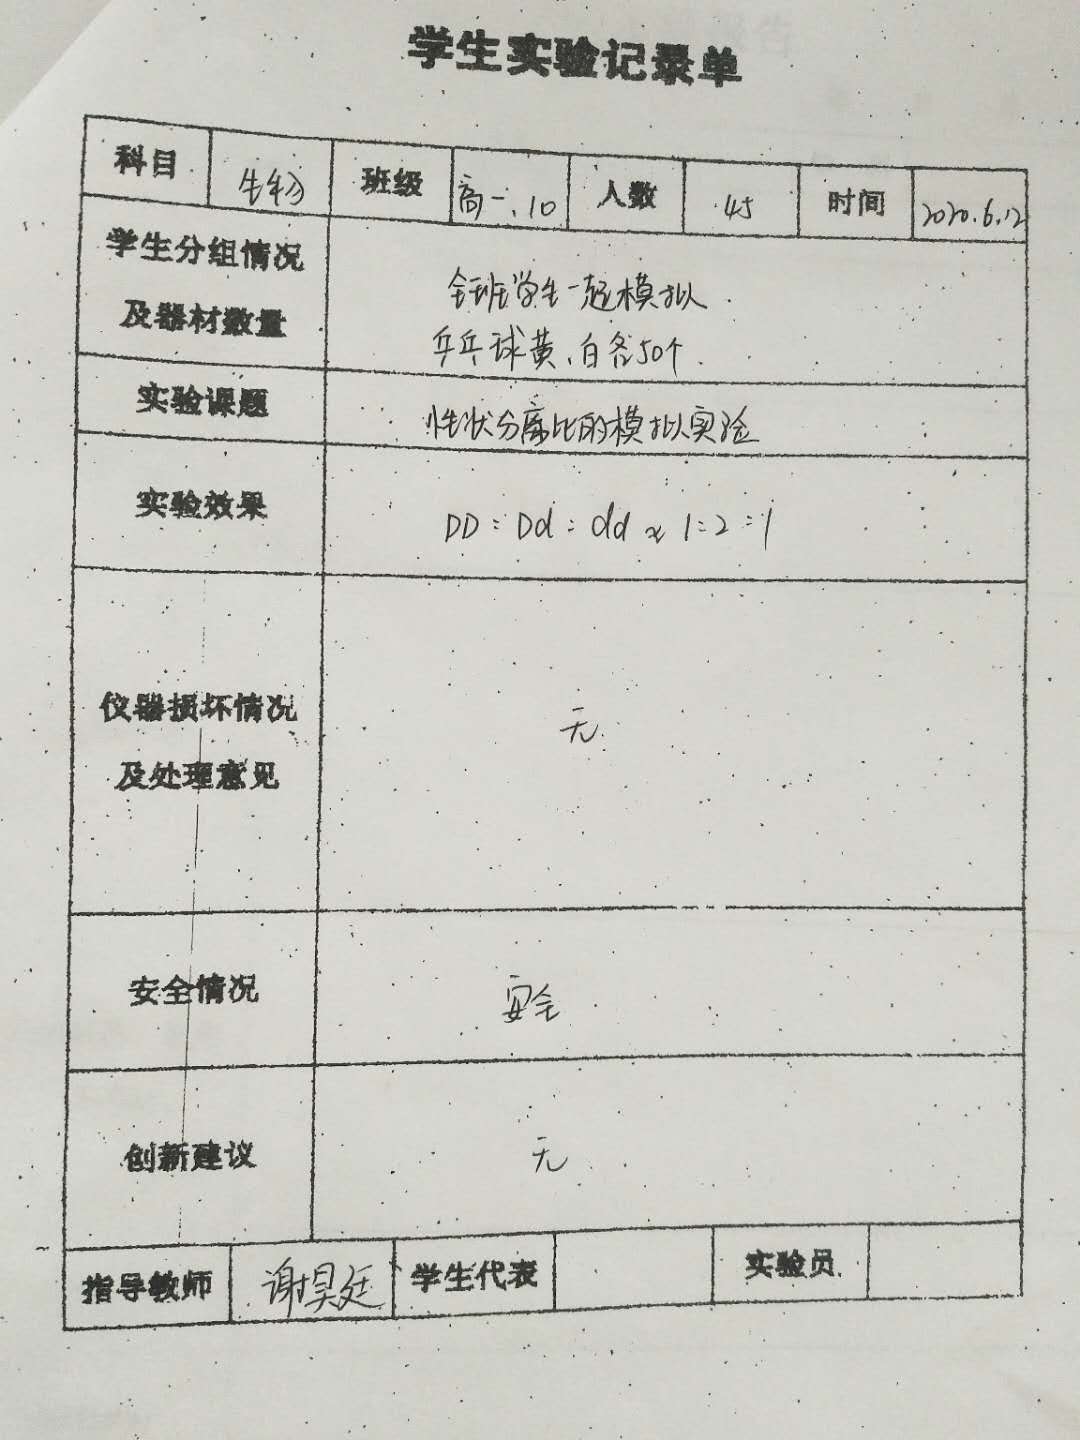 学生实验记录单
科目 生物 班级 高一.10 人数 45 时间 2020.6.12
学生分组情况
及器材数量
全班学生一起模拟
乒乓球黄、白各50个
实验课题 性状分离比的模拟实验
实验效果 DD:Dd:dd≈1:2:1
仪器损坏情况
及处理意见
无
安全情况 安全
创新建议 无
指导教师 谢昊廷 学生代表 实验员